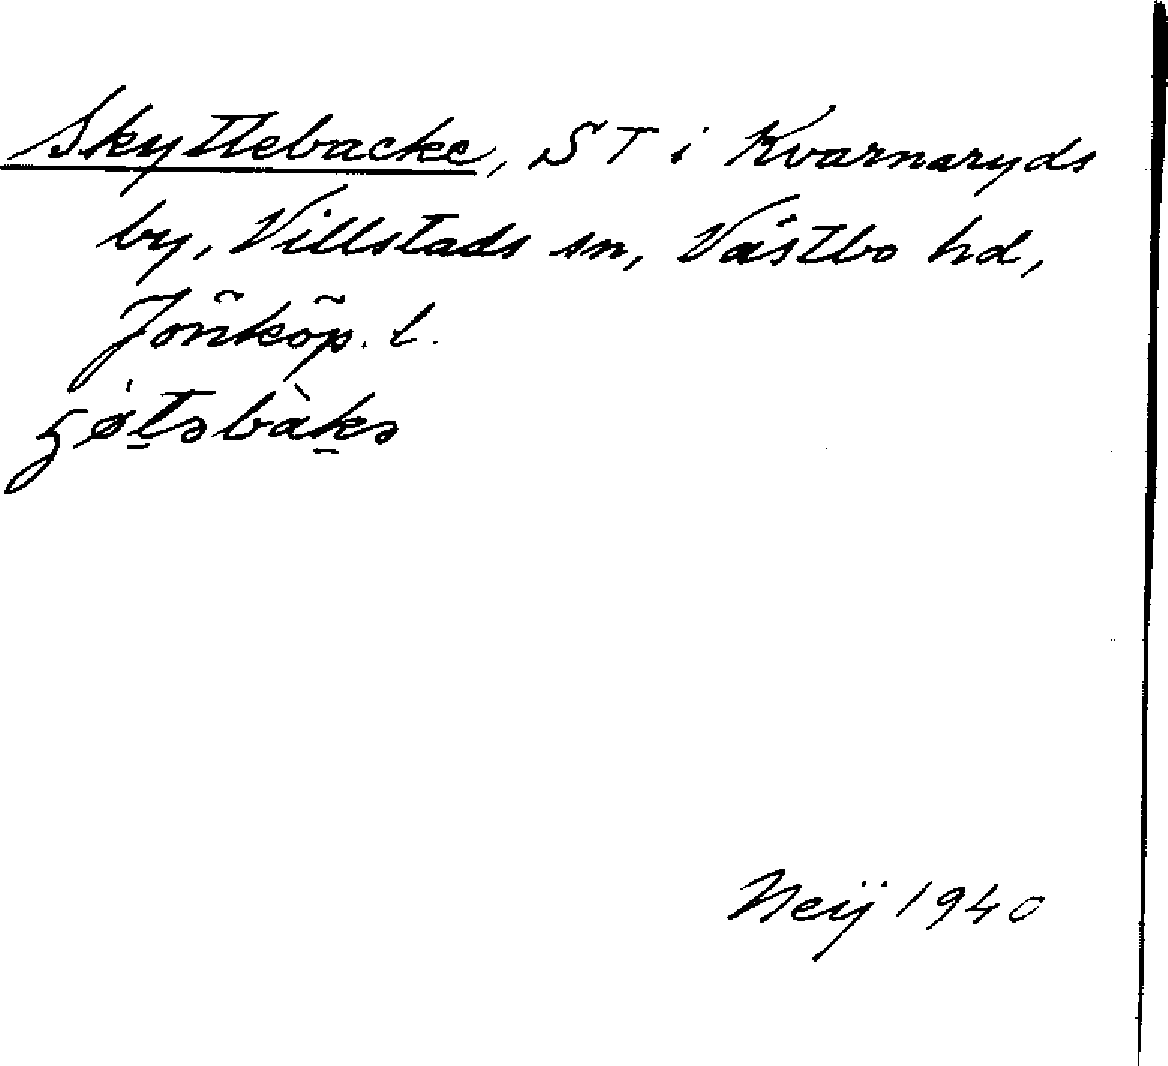 Skyttebacke, ST i Kvarnaryds
by, Villstads sn, Västbo hd,
Jönköp. l.
Neij 1940